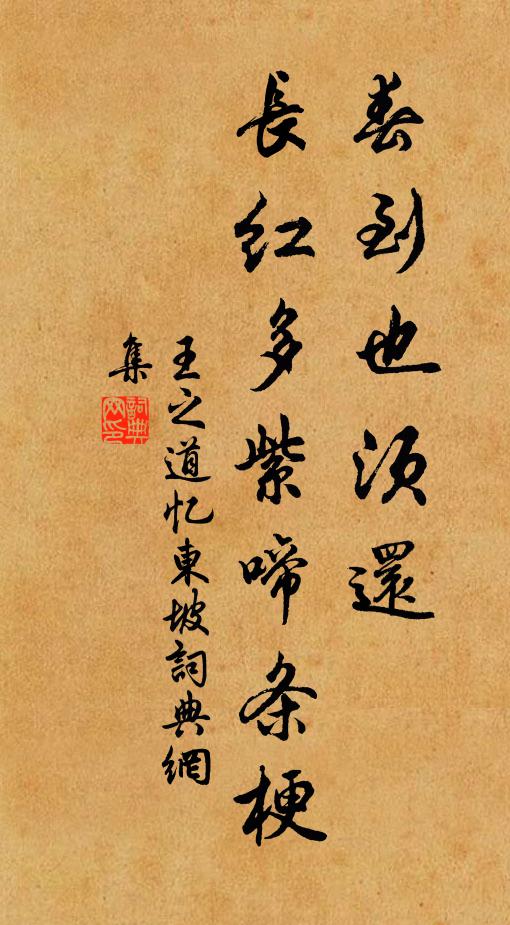 春到也須還
長红多紫啼条梗
王之道忆東坡詞典網
集
詞典网印